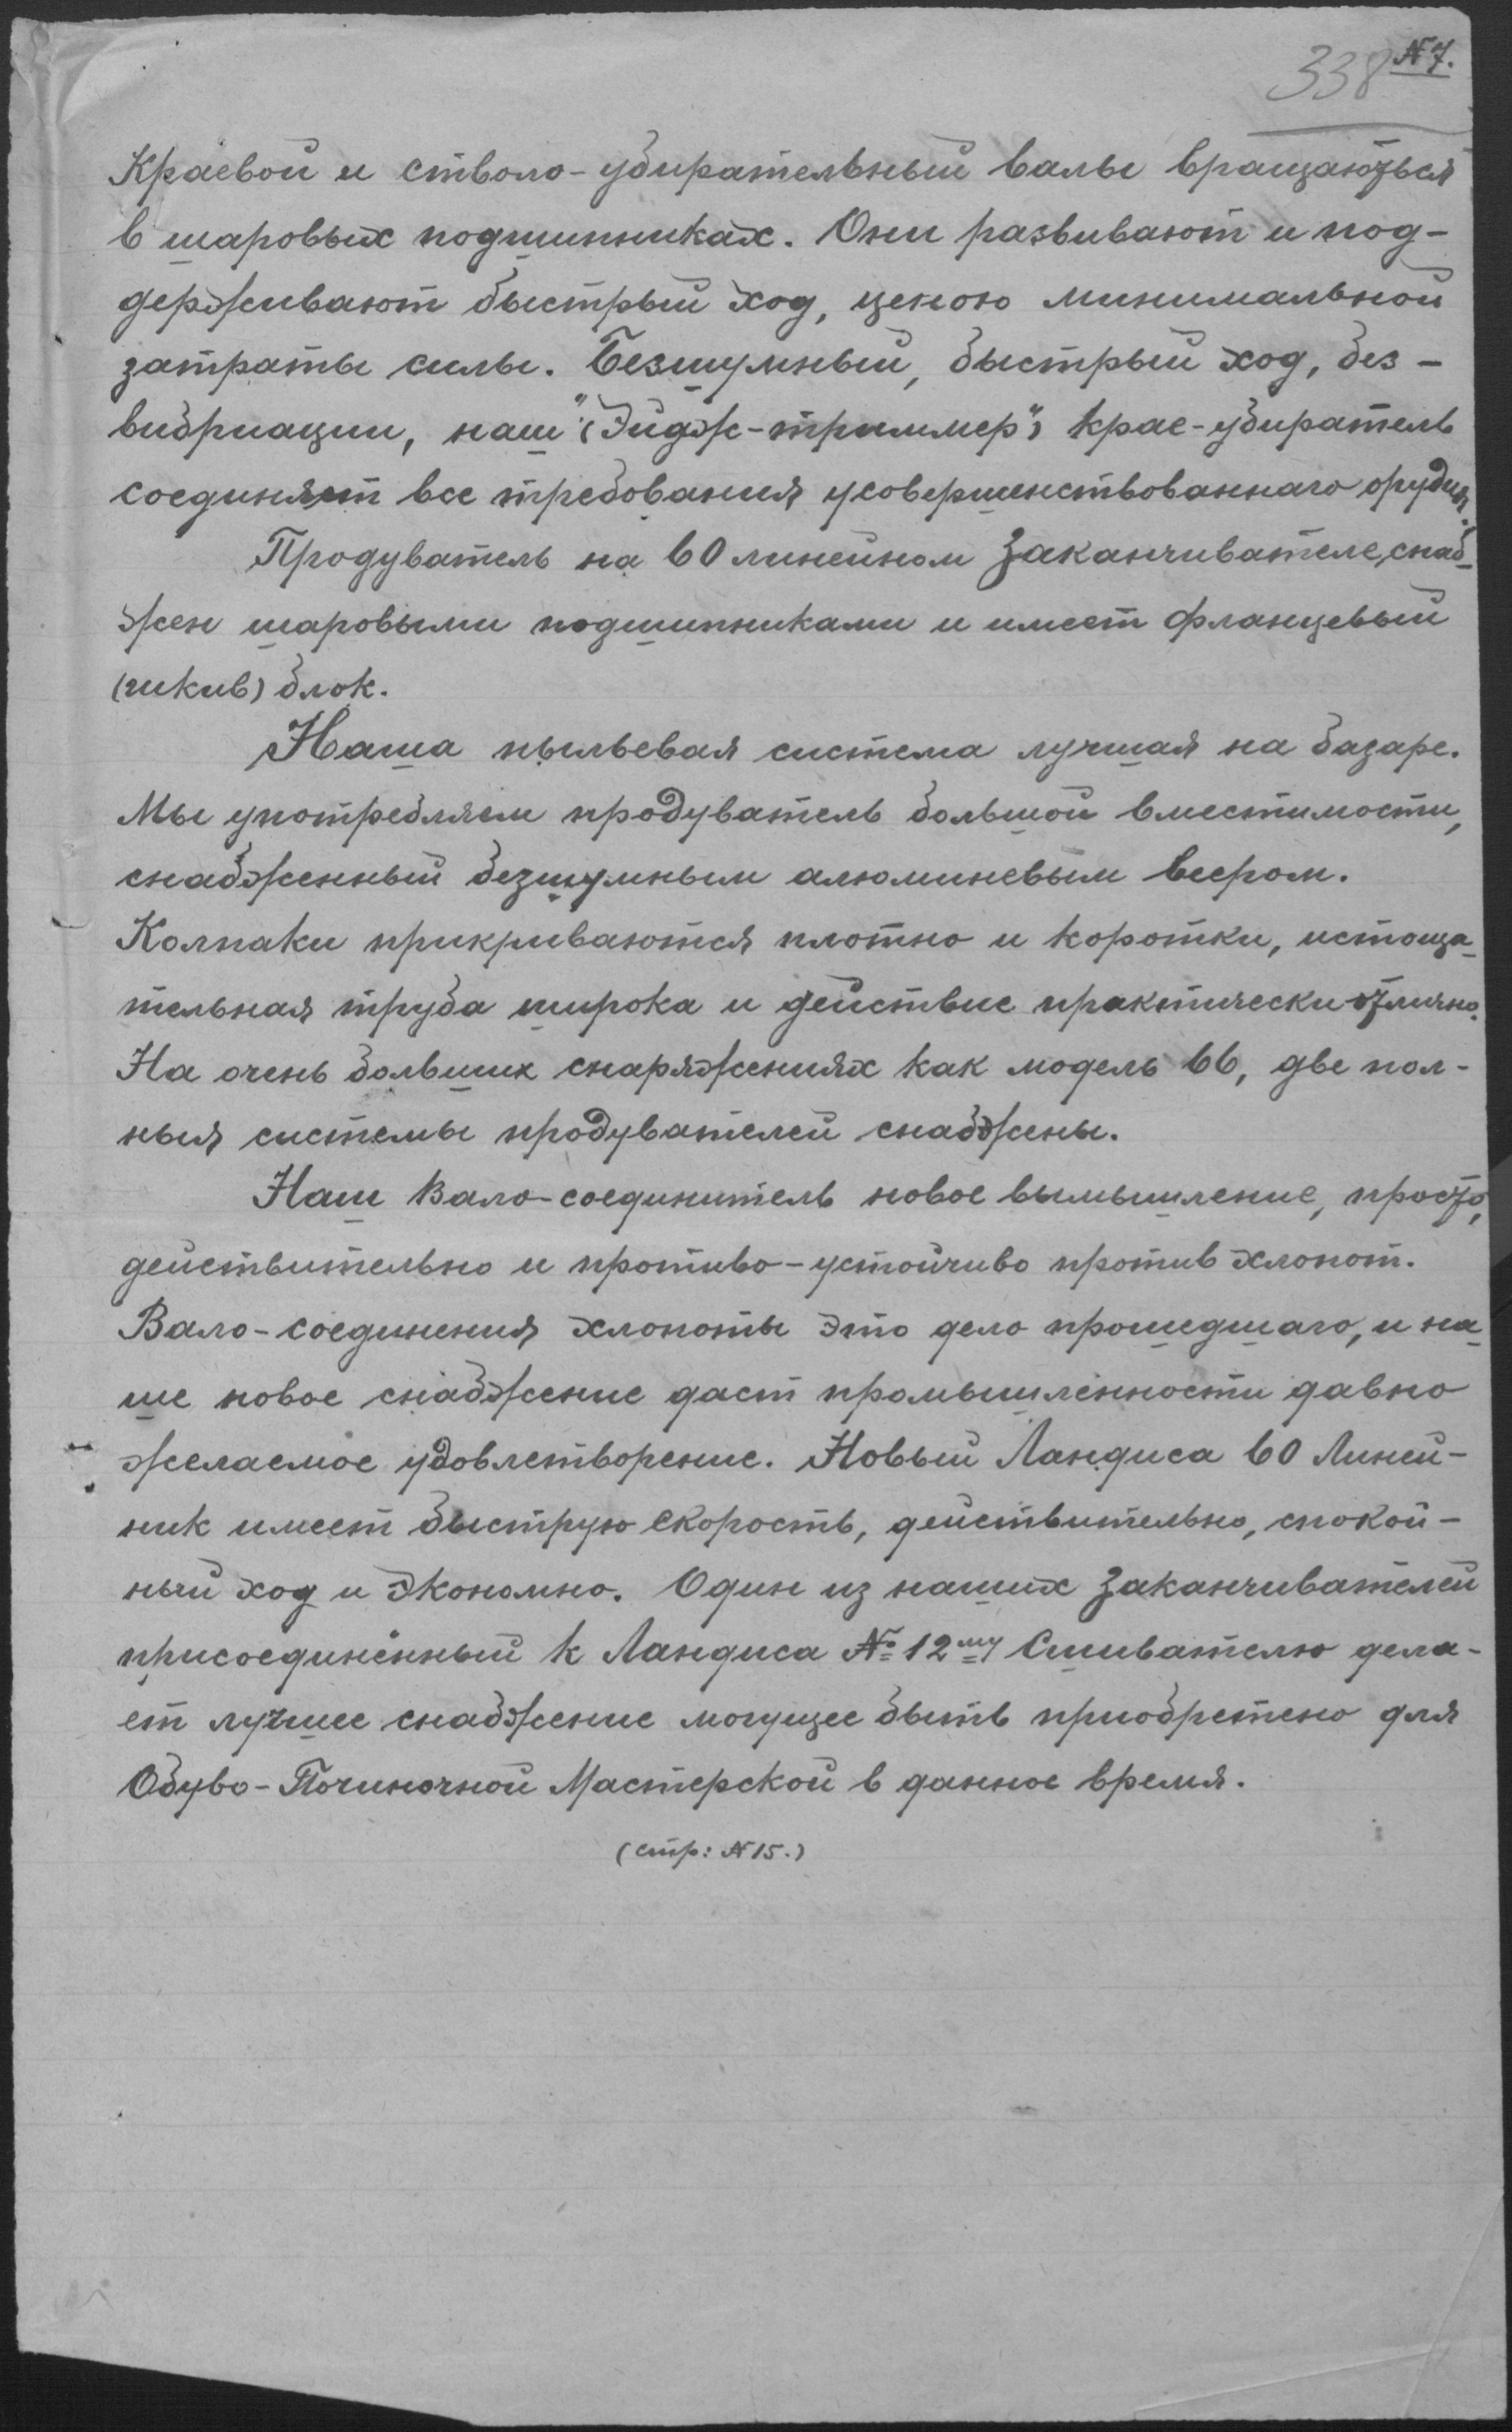 338 № 7.
Краевой и стволо-убирательный валы вращаються
в шаровых подшипниках. Они развивают и под-
держивают быстрый ход, ценою минимальной
затраты силы. Безшумный, быстрый ход, без-
вибриации, наш "(Эйдж-триммер") крае-убиратель
соединяет все требования усовершенствованнаго орудия.
Продуватель на 60 линейном Заканчивателе, снаб-
жен шаровыми подшипниками и имеет фланцевый
(шкив) блок.
Наша пыльевая система лучшая на базаре.
Мы употребляем продуватель большой вместимости,
снабженный безшумным алюминевым веером.
Колпаки прикриваются плотно и коротки, истоща-
тельная труба широка и действие практически отлично.
На очень больших снаряжениях как модель 66, две пол-
ныя системы продувателей снабжены.
Наш Вало-соединитель новое вымышление, просто,
действительно и противо-устойчиво против хлопот.
Вало-соединения хлопоты это дело прошедшаго, и на-
ше новое снабжение даст промышленности давно
желаемое удовлетворение. Новый Ландиса 60 Линей-
ник имеет быструю скорость, действительно, спокой-
ный ход и экономно. Один из наших Заканчивателей
присоединённый к Ландиса № 12му Сшивателю дела-
ет лучшее снабжение могущее быть приобретено для
Обуво-Починочной Мастерской в данное время.
(стр: № 15.)